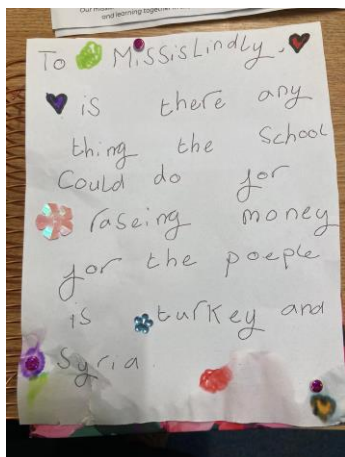 and learning together
To MissisLindly.
is there any
thing the School
Could do for
raseing money
for the poeple
is turkey and
Syria